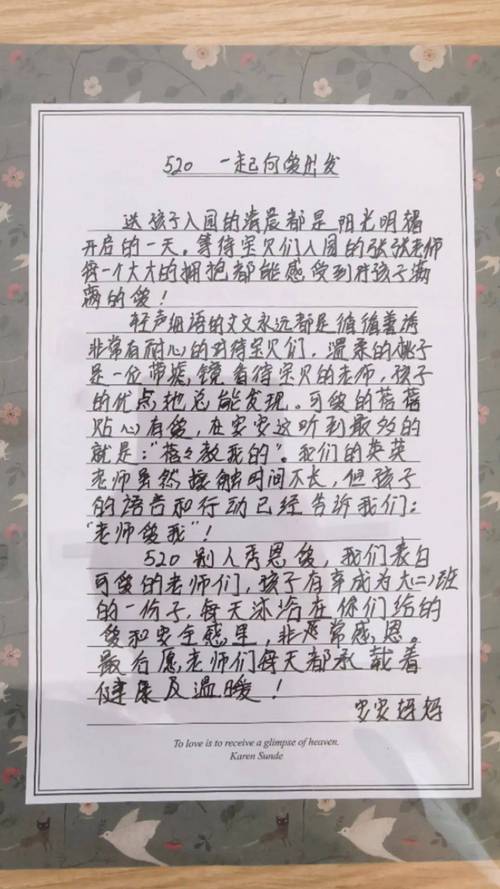 520 一起向爱出发
送孩子入园的清晨都是阳光明媚
开启的一天。等待宝贝们入园的张张老师
每一个大大的拥抱都能感受到对孩子满
满的爱！
轻声细语的文文永远都是循循善诱
非常有耐心的对待宝贝们，温柔的桃子
是一位带滤镜看待宝贝的老师，孩子
的优点她总能发现。可爱的蓓蓓
贴心有爱，在安安这听到最多的
就是："蓓々教我的"。我们的英英
老师虽然接触时间不长，但孩子
的语言和行动已经告诉我们：
"老师爱我"！
520别人秀恩爱，我们表白
可爱的老师们，孩子有幸成为大(二)班
的一份子，每天沐浴在你们给的
爱和安全感里，非常感恩。
最后愿老师们每天都承载着
健康及温暖！
安安妈妈
To love is to receive a glimpse of heaven.
Karen Sunde